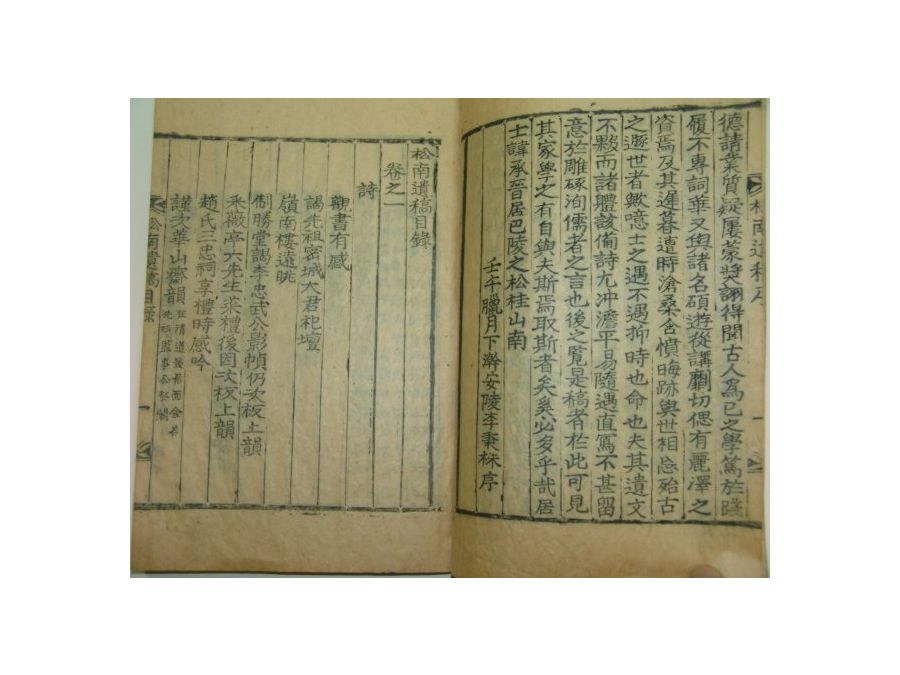 松南遺稿序
德請業質疑屢蒙奬詡得聞古人爲已之學篤於踐
履不專詞華又與諸名碩遊從講劘切偲有麗澤之
資焉及其遲暮遭時滄桑含憤晦跡與世相忘殆古
之遯世者歟噫士之遇不遇抑時也命也夫其遺文
不夥而諸體該備詩尤冲澹平易隨遇直寫不甚留
意於雕琢洵儒者之言也後之覧是稿者於此可見
其家學之有自與夫斯焉取斯者矣奚必多乎哉居
士諱承晉居巴陵之松桂山南
壬午臘月下澣安陵李秉秝序
松南遺稿目錄
卷之一
詩
觀書有感
謁先祖密城大君祀壇
嶺南樓遠眺
制勝堂謁李忠武公影幀仍次板上韻
采薇亭六先生菜禮後因次板上韻
趙氏三忠祠享禮時感吟
謹次華山齋韻 在淸道
松南遺稿目錄 一